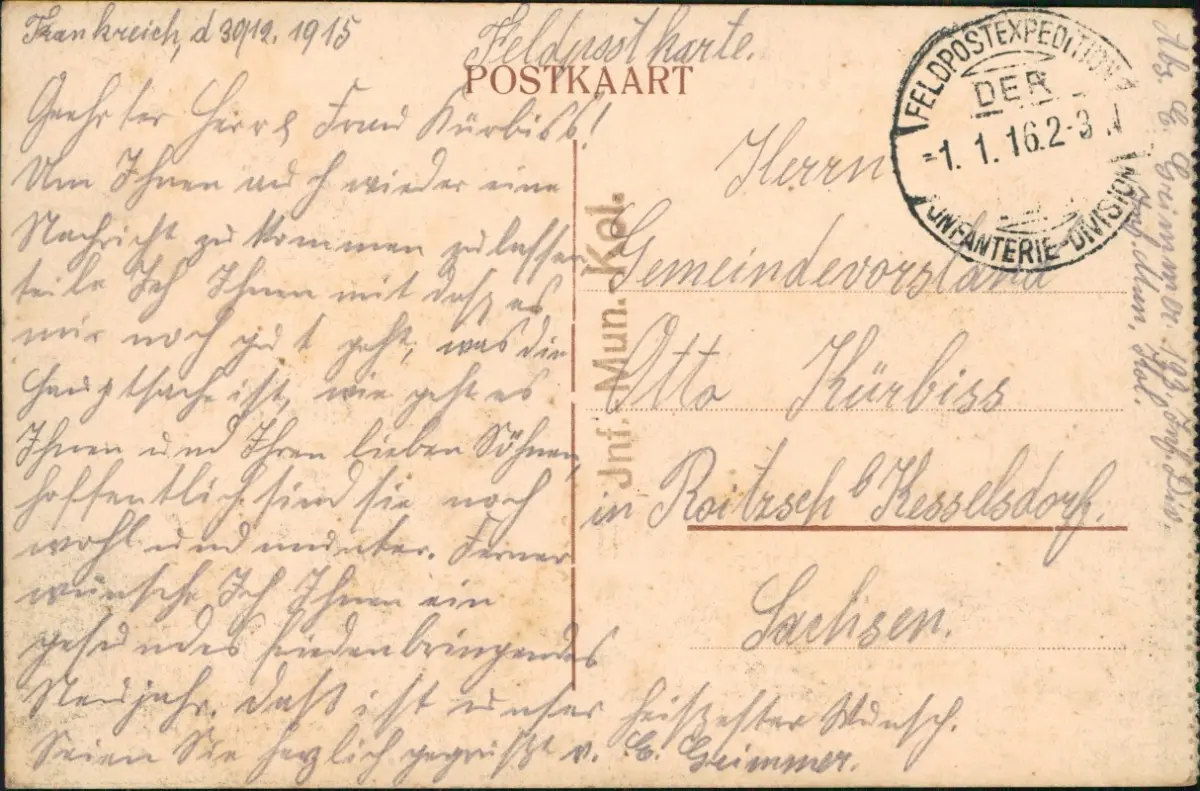 Frankreich, d 30/12. 1915
Feldpostkarte.
POSTKAART
Geehrter Herr & Frau Kürbiss!
Um Ihnen auch wieder eine
Nachricht zu kommen zu lassen
teile Ich Ihnen mit dasz es
mir noch gut geht, was die
Hauptsache ist, wie geht es
Ihnen und Ihren lieben Söhnen,
hoffentlich sind sie noch
wohl und munter. Ferner
wünsche Ich Ihnen ein
gesundes friedenbringendes
Neujahr. Daß ist unser heiszester Wunsch.
Seien Sie herzlich gegrüßt v. C. Greimmer.
FELDPOSTEXPEDITION
DER
-1. 1. 16. 2-3 N
INFANTERIE-DIVISION
Jnf. Mun. Kol.
Herrn
Gemeindevorstand
Otto Kürbiss
in Roitzsch b Kesselsdorf.
Sachsen.
Abs. C. Greimmer. 123. Inf. Div.
Inf. Mun. Kol.